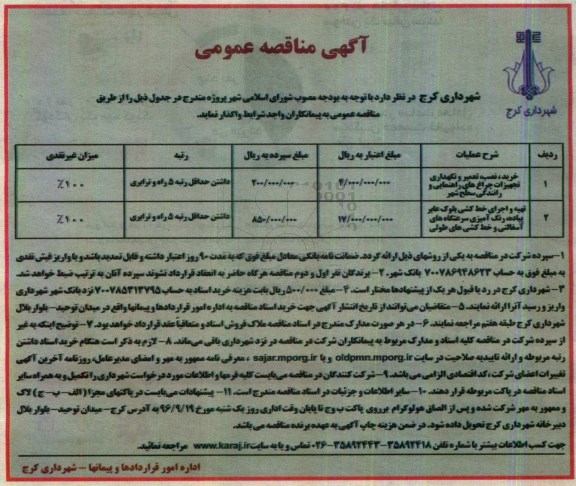 آگهی مناقصه عمومی
شهرداری کرج
شهرداری کرج در نظر دارد با توجه به بودجه مصوب شورای اسلامی شهر پروژه مندرج در جدول ذیل را از طریق
مناقصه عمومی به پیمانکاران واجد شرایط واگذار نماید.
ردیف شرح عملیات مبلغ اعتبار به ریال مبلغ سپرده به ریال رتبه میزان غیرنقدی
۱ خرید، نصب، تعمیر و نگهداری تجهیزات چراغ های راهنمایی و رانندگی سطح شهر ۴/۰۰۰/۰۰۰/۰۰۰ ۲۰۰/۰۰۰/۰۰۰ داشتن حداقل رتبه ۵ راه و ترابری ٪۱۰۰
۲ تهیه و اجرای خط کشی بلوک عابر پیاده، رنگ آمیزی سرعتکاه های آسفالتی و خط کشی های طولی ۱۷/۰۰۰/۰۰۰/۰۰۰ ۸۵۰/۰۰۰/۰۰۰ داشتن حداقل رتبه ۵ راه و ترابری ٪۱۰۰
۱- سپرده شرکت در مناقصه به یکی از روشهای ذیل ارائه گردد. ضمانت نامه بانکی معادل مبلغ فوق که به مدت ۹۰ روز اعتبار داشته و قابل تمدید باشد و یا واریز فیش نقدی
به مبلغ فوق به حساب ۷۰۰۷۸۶۹۴۸۶۲۳ بانک شهر. ۲- برندگان نفر اول و دوم مناقصه هرگاه حاضر به انعقاد قرارداد نشوند سپرده آنان به ترتیب ضبط خواهد شد.
۳- شهرداری کرج در رد یا قبول هر یک از پیشنهادها مختار است. ۴- مبلغ ۵۰۰/۰۰۰ ریال بابت هزینه خرید اسناد به حساب ۷۰۰۷۸۵۳۱۳۷۹۵ نزد بانک شهر شهرداری
واریز و رسید آنرا ارائه نمایند. ۵- متقاضیان می‌توانند از تاریخ انتشار آگهی جهت خرید اسناد مناقصه به اداره امور قراردادها و پیمانها واقع در میدان توحید- بلوار بلال
شهرداری کرج طبقه هفتم مراجعه نمایند. ۶- در هر صورت مدارک مندرج در اسناد مناقصه ملاک فروش اسناد و متعاقباً عقد قرارداد خواهد بود. ۷- توضیح اینکه به غیر
از سپرده شرکت در مناقصه کلیه اسناد و مدارک مربوط به پیمانکاران شرکت در مناقصه در نزد شهرداری باقی می‌ماند. ۸- لازم به ذکر است هنگام خرید اسناد داشتن
رتبه مربوطه و ارائه تاییدیه صلاحیت در سایت oldpmn.mporg.ir و یا sajar.mporg.ir ، معرفی نامه ممهور به مهر و امضای مدیرعامل، روزنامه آخرین آگهی
تغییرات اعضای شرکت، کد اقتصادی الزامی می باشد. ۹- شرکت کنندگان در مناقصه می‌بایست کلیه فرمها و اطلاعات مورد درخواست شهرداری را تکمیل و به همراه سایر
اسناد مناقصه در پاکت مربوطه قرار دهند. ۱۰- سایر اطلاعات و جزئیات در اسناد مناقصه مندرج است. ۱۱- پیشنهادات می‌بایست در پاکتهای مجزا (الف- ب- ج) لاک
و ممهور به مهر شرکت شده و پس از الصاق هولوگرام بر روی پاکت ب و ج تا پایان وقت اداری روز یک شنبه مورخ ۹۶/۹/۱۹ به آدرس کرج- میدان توحید- بلوار بلال
دبیرخانه شهرداری کرج تحویل داده شود. در ضمن هزینه چاپ آگهی به عهده برنده مناقصه می باشد.
جهت کسب اطلاعات بیشتر با شماره تلفن ۳۵۸۹۲۴۱۸-۳۵۸۹۲۴۴۳-۰۲۶ تماس و یا به سایت www.karaj.ir مراجعه نمائید.
اداره امور قراردادها و پیمانها - شهرداری کرج